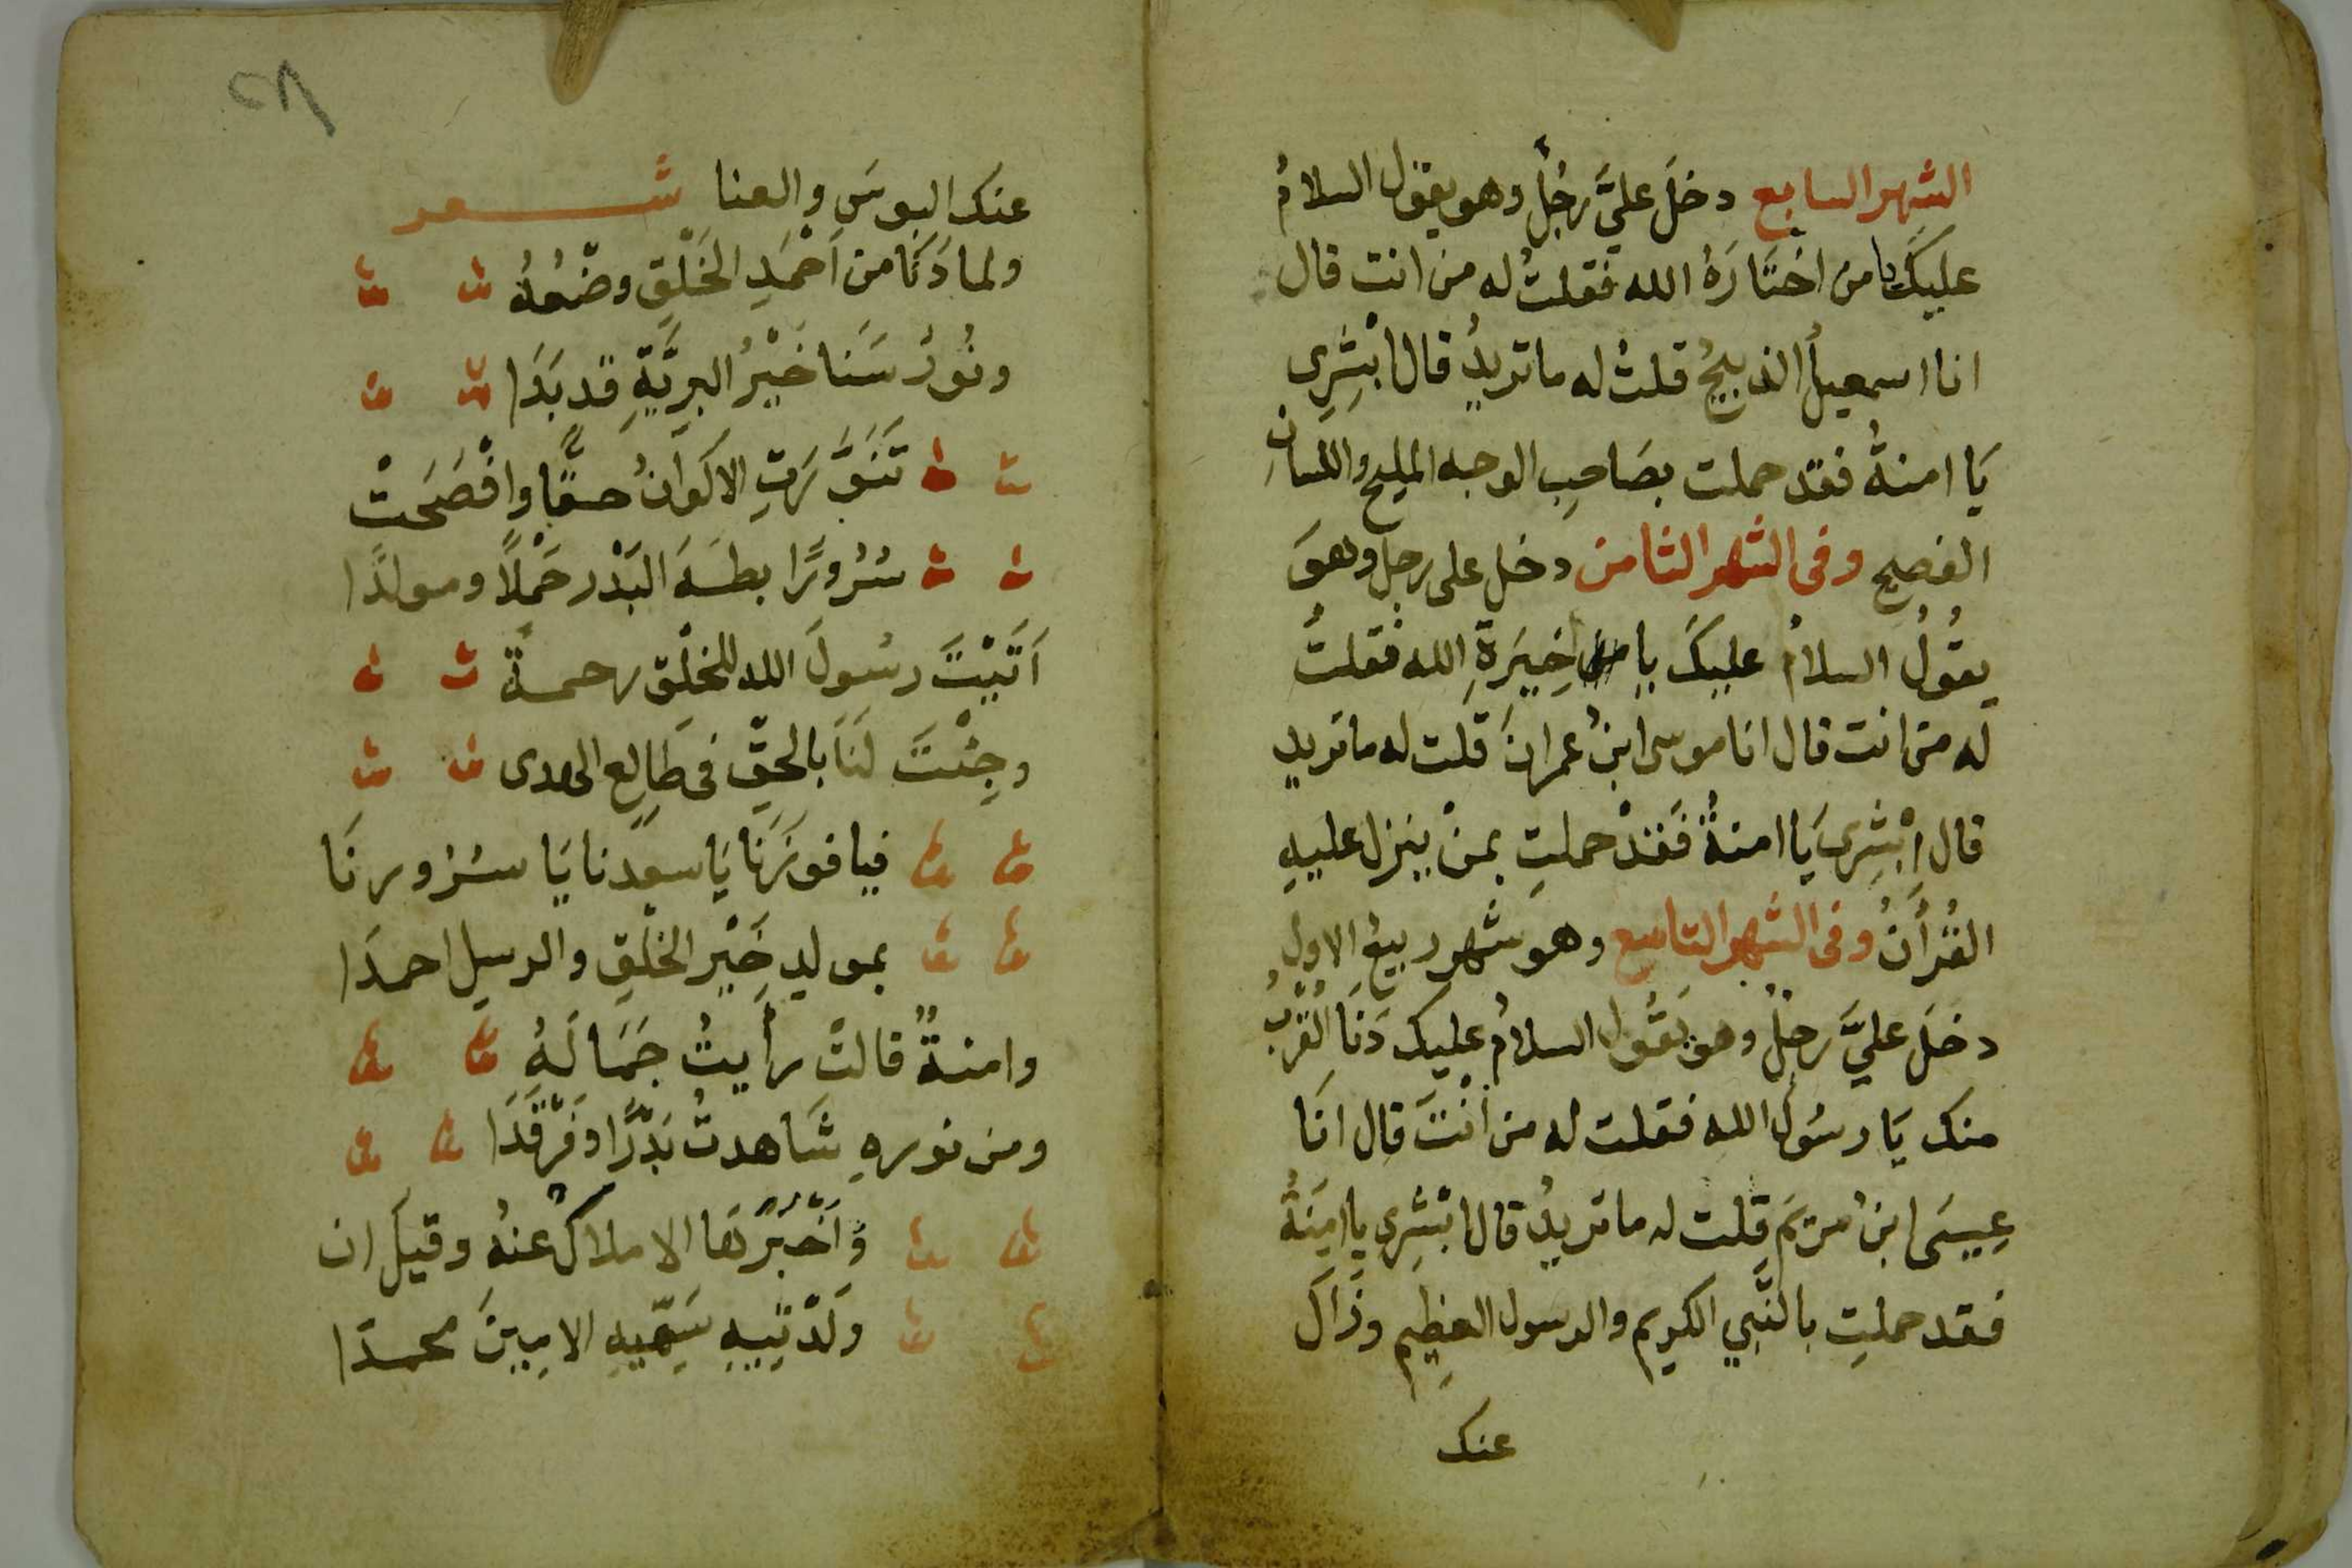 الشهر السابع دخلَ عليَّ رجُلٌ وهو يقول السلامُ
عليكَ يا من اختَارَهُ الله فقلتُ له من انت قال
انا اسمعيلُ الذبيحُ قلتُ له ما تريدُ قال ابْشِرِي
يَا امنةُ فقد حملت بصَاحِبِ الوجه المليح واللسانِ
الفصيح وفى الشهر الثامن دخل على رجل وهوَ
يقُولُ السلامُ عليكَ يا خِيَرَةِ الله فقلتُ
له من انت قال انا موسى ابنُ عمرانَ قلت له ما تريد
قال ابْشِرِى يَا امنةُ فَقَدْ حملتِ بمنْ ينزل عليهِ
القُرْأنُ وفى الشهر التاسع وهو شهر ربيعُ الاول
دخلَ عليَّ رجلٌ وهو يَقُول السلامُ عليك دَنَا القُرْبُ
منك يَا رسُولَ الله فقلت له من أنْتَ قال انَا
عِيسَى ابنُ مريَم قلت له ما تريدُ قال ابْشِرِى يا امِنَةُ
فقد حملتِ بالنَّبِي الكريم والرسول العظِيم وزَالَ
عنك
عنك البوسَ والعنا شعر
ولما دَنَا من اَحْمَدِ الخَلْقِ وضْعُهُ
ونُورُ سَنَا خَيْرُ البرِيَّةِ قد بَدَا
تَنَوَّرَتِ الاكوَانُ حقًّا وافْصَحَتْ
سُرُورًا بطَهَ البَدْر حَمْلًا ومولدًا
اَتَيْتَ رسُولَ الله للخلْقِ رحمةً
وجِئْتَ لَنَا بالحَقِّ فى طَالِعِ الهدى
فيا فوزَنَا يَا سعدنا يَا سُرُورنَا
بمولدِ خَيْرِ الخلْقِ والرسل احمدَا
وامنةٌ قالتْ رأيتُ جَمَالَهُ
ومن نورهِ شَاهدتُ بَدْرًا وفَرْقَدَا
وَاَخْبَرَتها الاملاكُ عنهُ وقيلَ ان
ولَدْتِيهِ سَمِّيهِ الامِينَ محمدَا